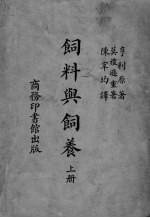 亨利原著
莫禮遜重著
陳宰均譯
飼料與飼養
上册
商務印書館出版